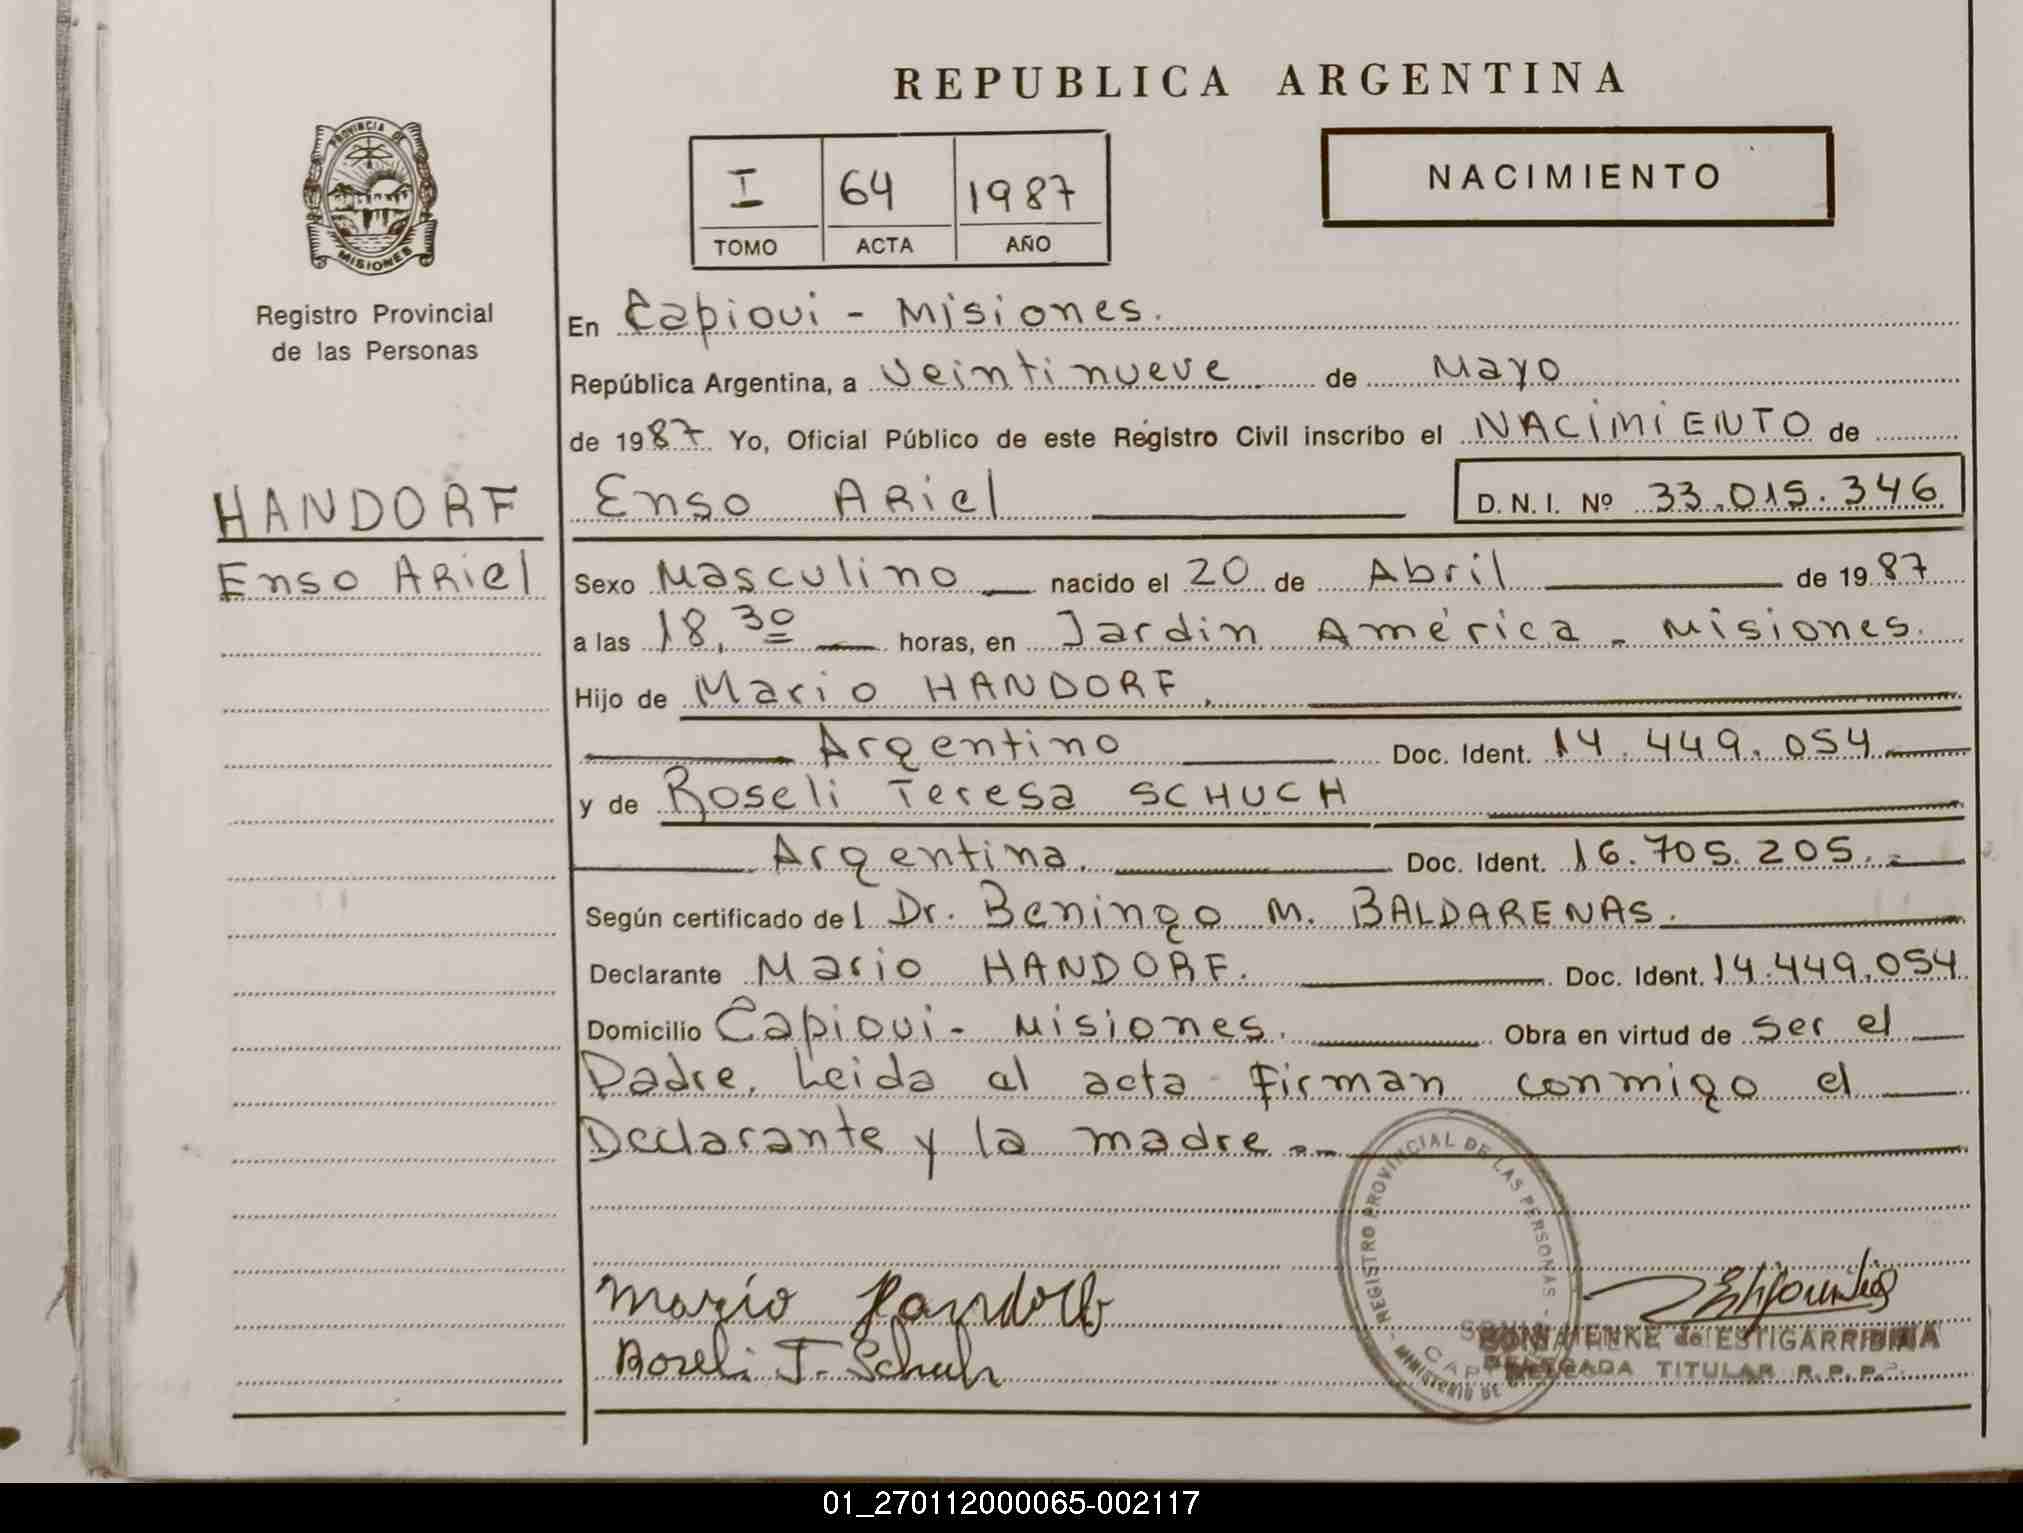 REPUBLICA ARGENTINA
PROVINCIA DE
MISIONES
Registro Provincial
de las Personas
I 64 1987
TOMO ACTA AÑO
NACIMIENTO
En Capiovi - Misiones.
República Argentina, a veintinueve de Mayo
de 1987. Yo, Oficial Público de este Registro Civil inscribo el NACIMIENTO de
HANDORF
Enso Ariel
Enso Ariel D. N. I. Nº 33.015.346
Sexo Masculino nacido el 20 de Abril de 1987
a las 18,30 horas, en Jardin América - Misiones.
Hijo de Mario HANDORF.
Argentino Doc. Ident. 14.449.054
y de Roseli Teresa SCHUCH
Argentina. Doc. Ident. 16.705.205.-
Según certificado del Dr. Beningo M. BALDARENAS.
Declarante Mario HANDORF. Doc. Ident. 14.449.054
Domicilio Capiovi - Misiones. Obra en virtud de ser el
Padre. Leida el acta firman conmigo el
Declarante y la madre.-
REGISTRO PROVINCIAL DE LAS PERSONAS - MINISTERIO DE
Mario Handorf
Roseli T. Schuh
HENKE de ESTIGARRIBIA
DELEGADA TITULAR R.P.P.
01_270112000065-002117